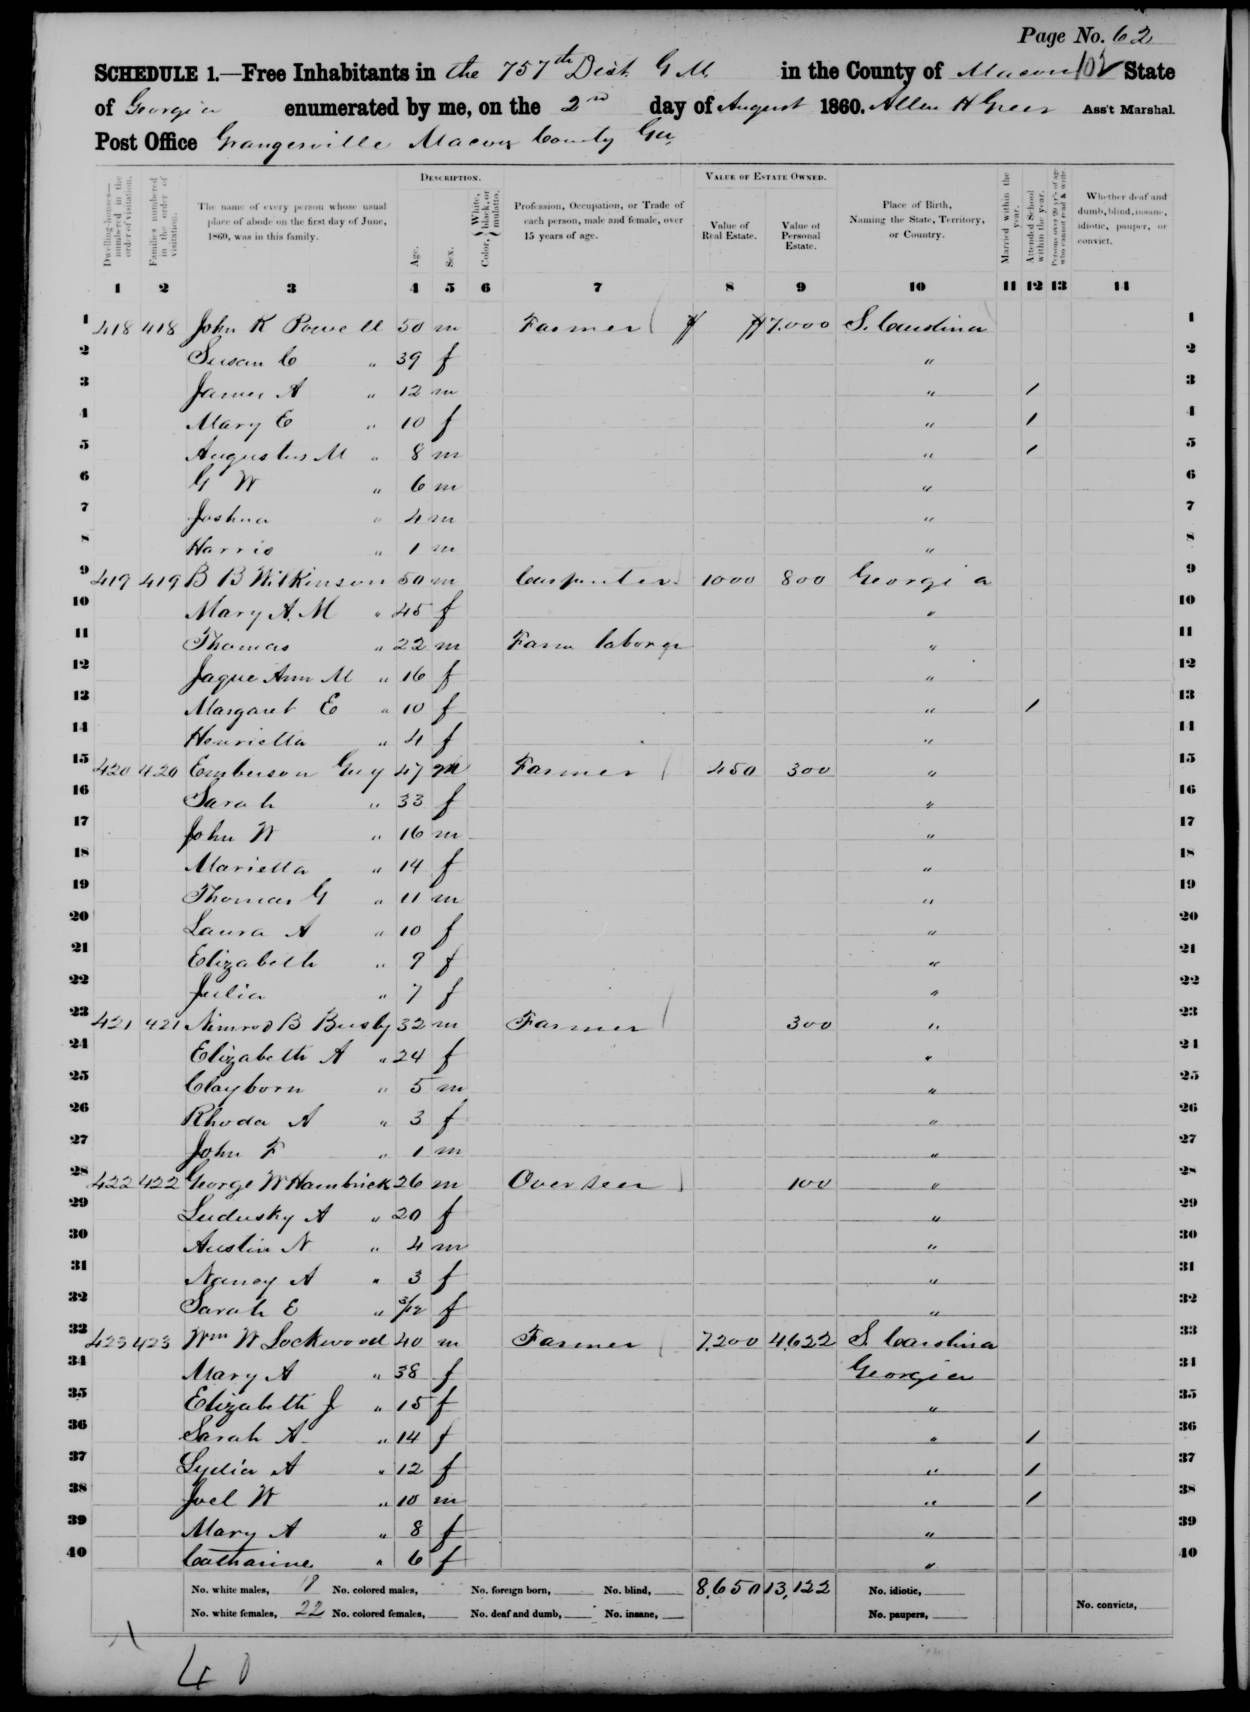 Page No. 62
SCHEDULE 1.—Free Inhabitants in the 757th Dist G M in the County of Macon 102 State
of Georgia enumerated by me, on the 2nd day of August 1860. Allen H Greer Ass't Marshal.
Post Office Grangerville Macon County Ga,
DESCRIPTION. VALUE OF ESTATE OWNED.
Dwelling-houses—numbered in the order of visitation. Families numbered in the order of visitation. The name of every person whose usual place of abode on the first day of June, 1860, was in this family. Age. Sex. Color, White, black, or mulatto. Profession, Occupation, or Trade of each person, male and female, over 15 years of age. Value of Real Estate. Value of Personal Estate. Place of Birth, Naming the State, Territory, or Country. Married within the year. Attended School within the year. Persons over 20 y'rs of age who cannot read & write. Whether deaf and dumb, blind, insane, idiotic, pauper, or convict.
1 2 3 4 5 6 7 8 9 10 11 12 13 14
1 418 418 John K Powell 50 m Farmer 7,000 S. Carolina 1
2 Susan C " 39 f " 2
3 James A " 12 m " / 3
4 Mary E " 10 f " / 4
5 Augustus M " 8 m " / 5
6 G W " 6 m " 6
7 Joshua " 4 m " 7
8 Harris " 1 m " 8
9 419 419 B B Wilkinson 50 m Carpenter 1000 800 Georgia 9
10 Mary A. M " 45 f " 10
11 Thomas " 22 m Farm laborer " 11
12 Jaque Ann M " 16 f " 12
13 Margaret E " 10 f " / 13
14 Henrietta " 4 f " 14
15 420 420 Emberson Guy 47 m Farmer 450 300 " 15
16 Sarah " 33 f " 16
17 John W " 16 m " 17
18 Marietta " 14 f " 18
19 Thomas G " 11 m " 19
20 Laura A " 10 f " 20
21 Elizabeth " 9 f " 21
22 Julia " 7 f " 22
23 421 421 Nimrod B Busby 32 m Farmer 300 " 23
24 Elizabeth A " 24 f " 24
25 Clayborn " 5 m " 25
26 Rhoda A " 3 f " 26
27 John F " 1 m " 27
28 422 422 George W Hambrick 26 m Overseer 100 " 28
29 Ludusky A " 20 f " 29
30 Austin N " 4 m " 30
31 Nancy A " 3 f " 31
32 Sarah E " 3/12 f " 32
33 423 423 Wm W Lockwood 40 m Farmer 7,200 4,622 S. Carolina 33
34 Mary A " 38 f Georgia 34
35 Elizabeth J " 15 f " 35
36 Sarah A " 14 f " / 36
37 Lydia A " 12 f " / 37
38 Joel W " 10 m " / 38
39 Mary A " 8 f " 39
40 Catharine " 6 f " 40
No. white males, 18 No. colored males, No. foreign born, No. blind, 8,650 13,122 No. idiotic,
No. white females, 22 No. colored females, No. deaf and dumb, No. insane, No. paupers, No. convicts,
40